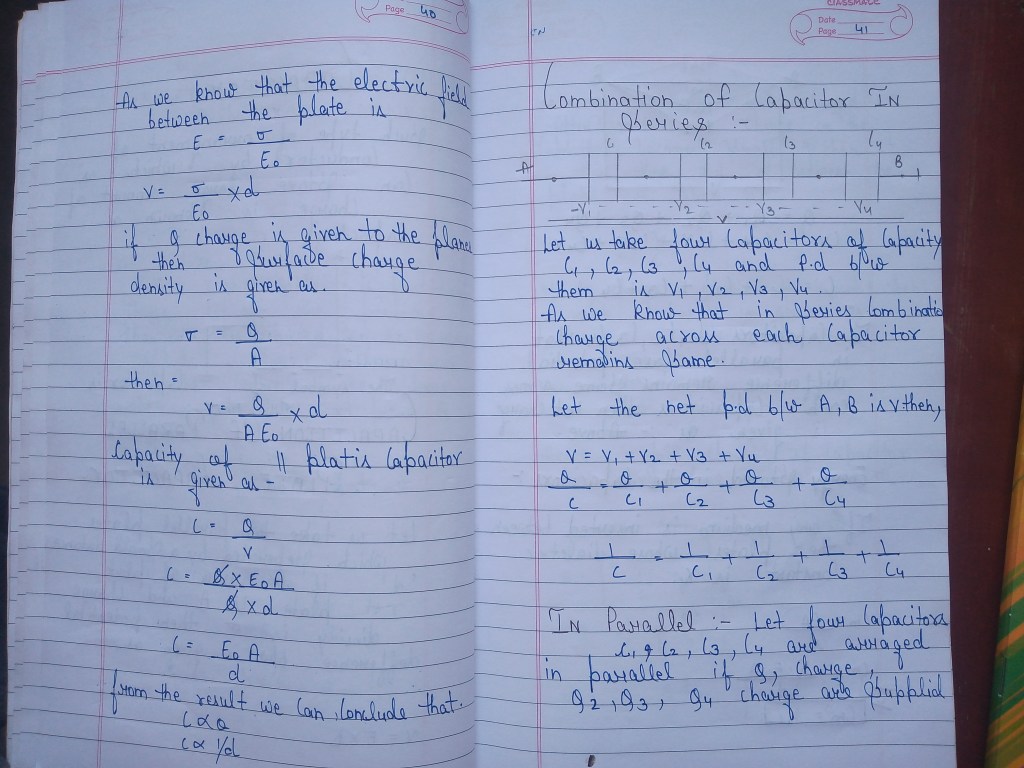 Page 40
As we know that the electric field
between the plate is
E = σ / E₀
V = σ / E₀ × d
if Q charge is given to the planes
then surface charge
density is given as.
σ = Q / A
then =
V = Q / A E₀ × d
Capacity of || platis Capacitor
is given as -
C = Q / V
C = Q × E₀ A / Q × d
C = E₀ A / d
from the result we can conclude that.
C ∝ a
C ∝ 1/d
CLASSMATE
Date
Page 41
Combination of Capacitor IN
Series :-
C C2 C3 C4
A B
V1 V2 V3 V4
V
Let us take four Capacitors of Capacity
C1, C2, C3, C4 and P.d b/w
them is V1, V2, V3, V4.
As we know that in Series Combinatio
charge across each Capacitor
remains same.
Let the net p.d b/w A, B is V then,
V = V1 + V2 + V3 + V4
Q / C = Q / C1 + Q / C2 + Q / C3 + Q / C4
1 / C = 1 / C1 + 1 / C2 + 1 / C3 + 1 / C4
IN Parallel :- Let four Capacitors
C1, C2, C3, C4 are arraged
in parallel if Q, charge,
Q2, Q3, Q4 charge are Supplid